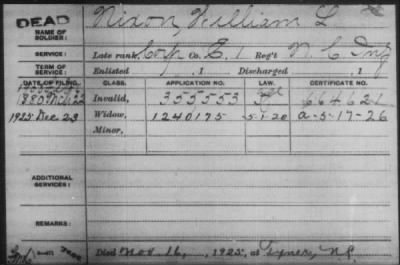 DEAD
NAME OF SOLDIER: Nixon, William L
SERVICE: Late rank, Corp Co. E, 1 Reg't N. C. Inf
TERM OF SERVICE: Enlisted , 1 Discharged , 1
DATE OF FILING. CLASS. APPLICATION NO. LAW. CERTIFICATE NO.
1880 Mch 22 Invalid, 355553 664621
1925 Dec 23 Widow, 1240175 5-1-20 A-5-17-26
Minor,
ADDITIONAL SERVICES:
REMARKS:
Died Nov. 16, 1925, at Tyner, N.C.